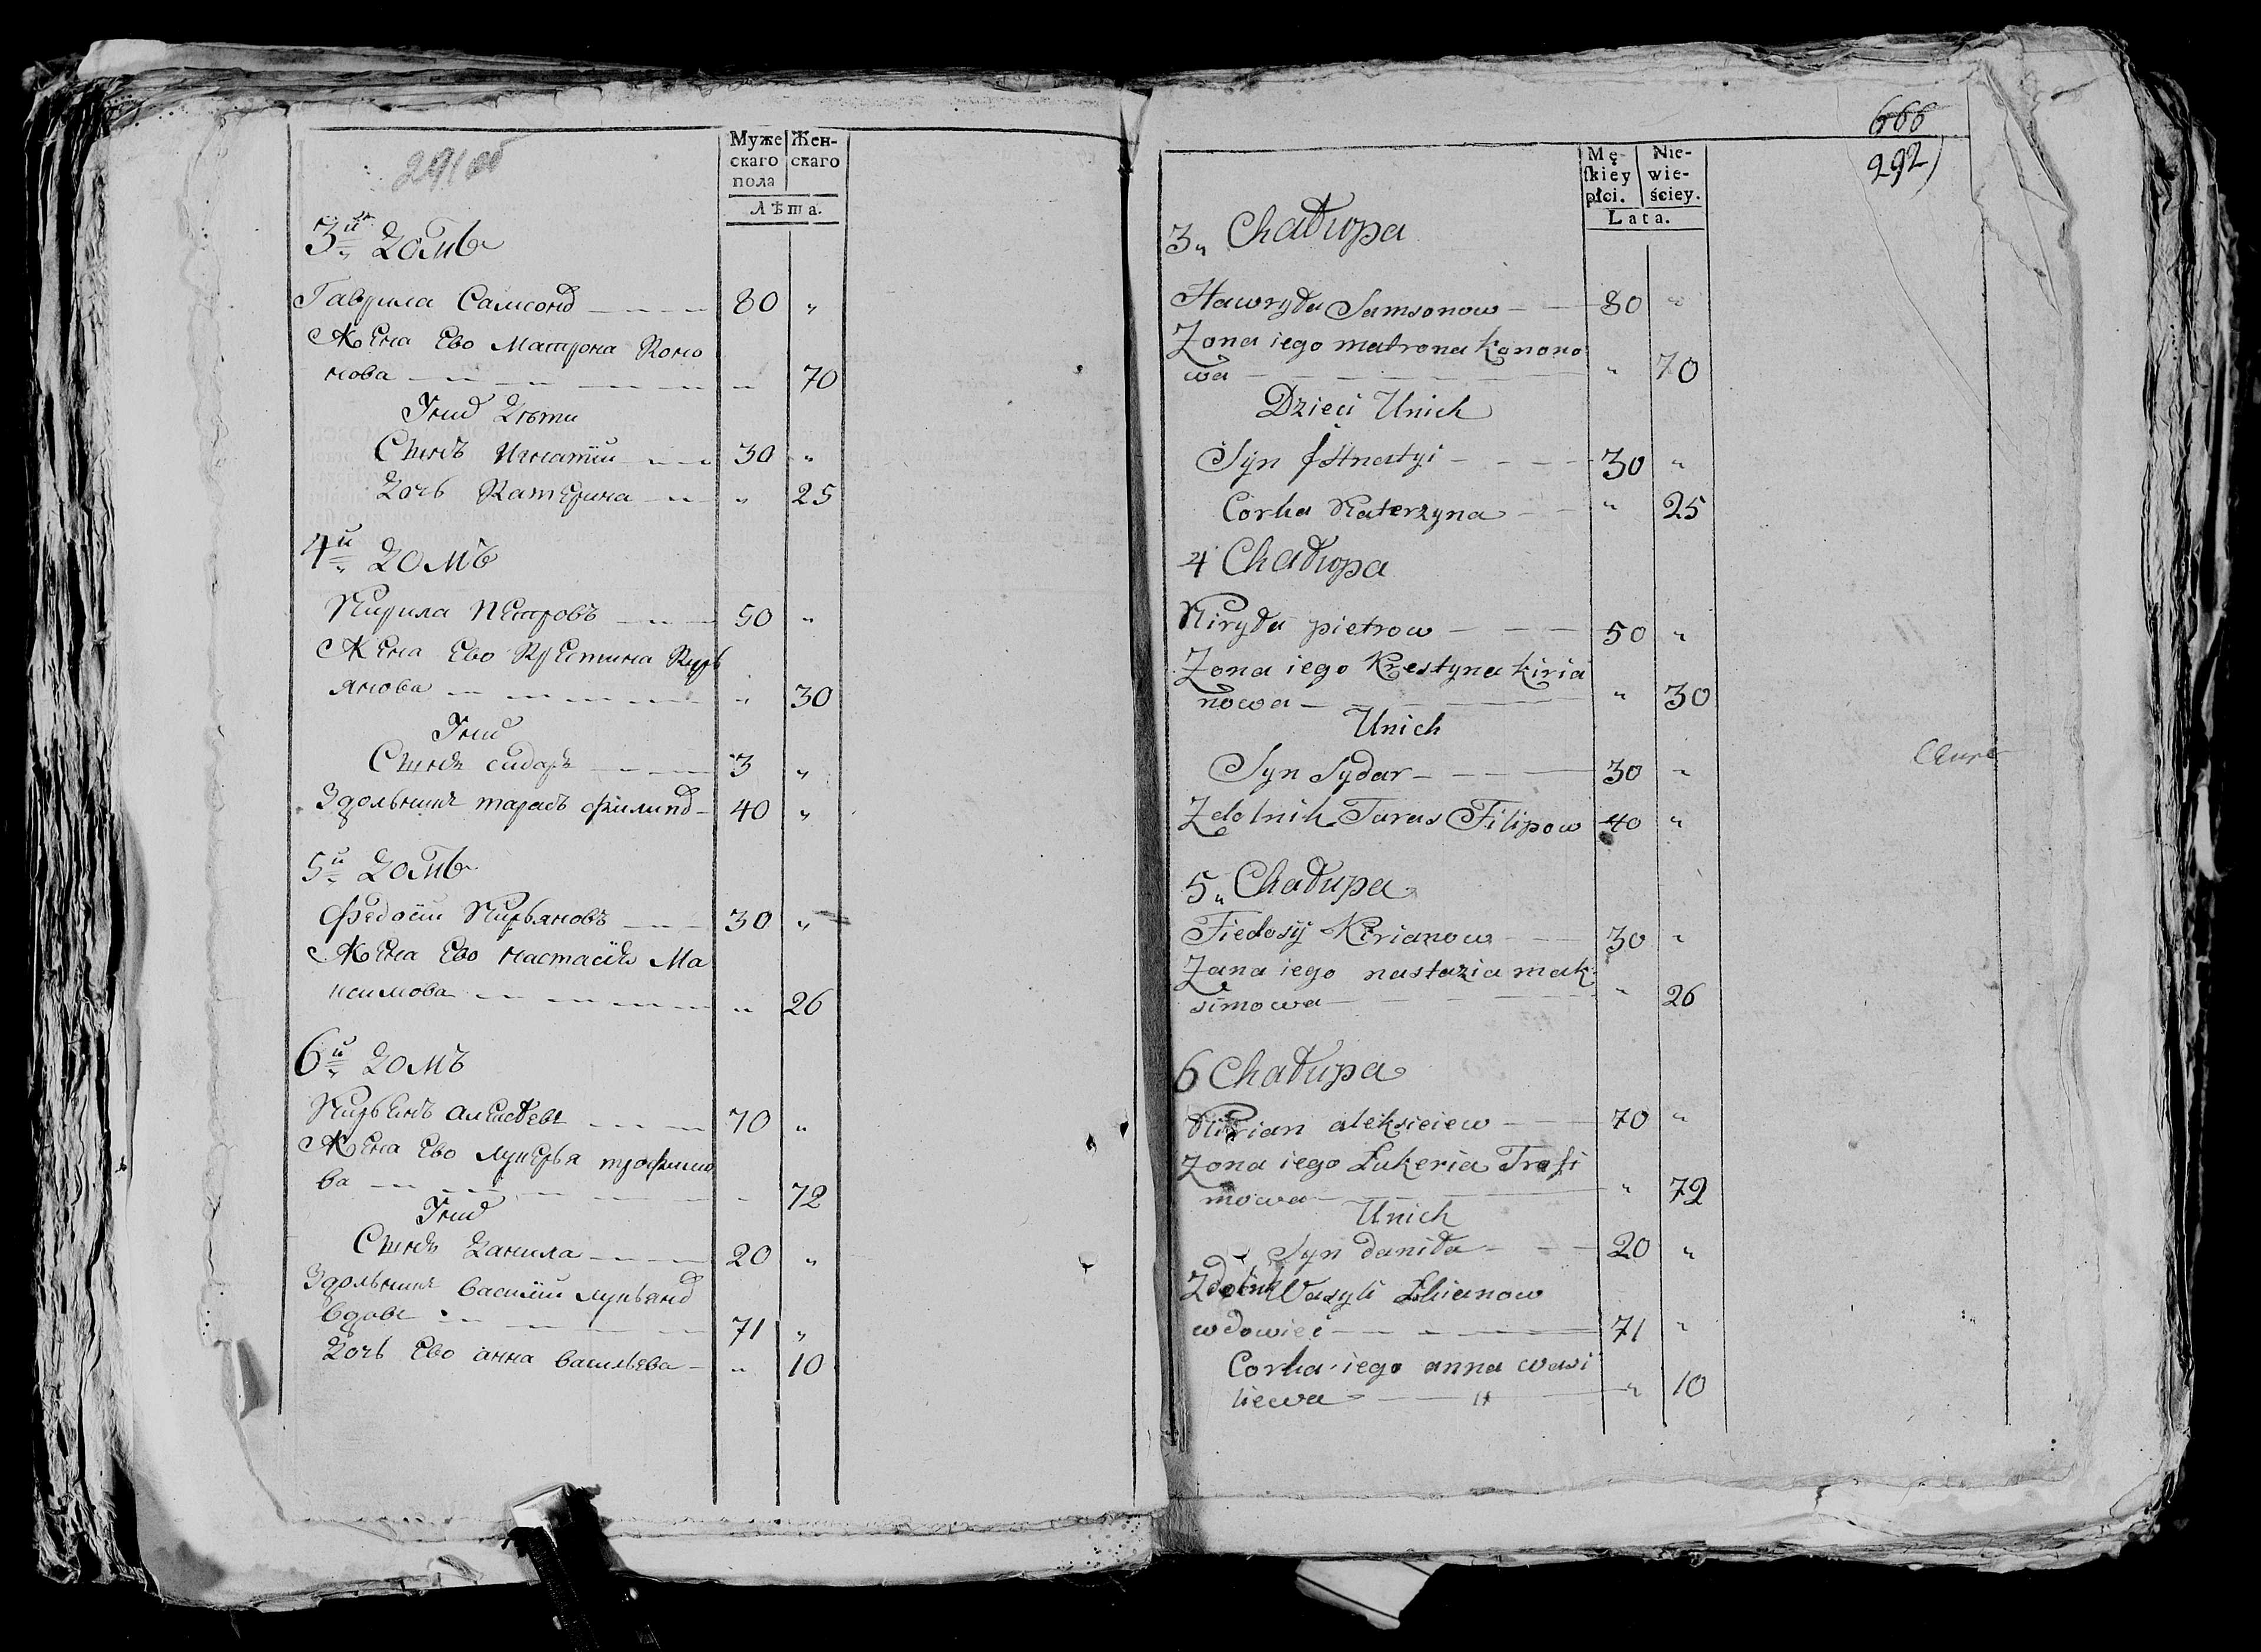 291об
Муже
скаго
пола
Жен-
скаго
Лѣта.
3й домъ
Гаврила Самсоновъ 80 "
Жена Ево Матрона Коно
нова " 70
Унихъ Дѣти
Сынъ Игнатий 30 "
Дочь Катерина " 25
4й домъ
Кирила Петровъ 50 "
Жена Ево Крестина Кирь
янова " 30
Унихъ
Сынъ сидоръ 3 "
Здольникъ тарасъ филиповъ 40 "
5й домъ
Федосий Кирьяновъ 30 "
Жена Ево настасия Ма
ксимова " 26
6й домъ
Кирьянъ алексѣевъ 70 "
Жена Ево лукерья трофимо
ва " 72
Унихъ
Сынъ данила 20 "
Здольникъ василий лукьяновъ
вдовъ 71 "
Дочь Ево анна васильева " 10
666
292
Mę-
skiey
płci.
Nie-
wie-
ściey.
Lata.
3" Chałupa
Hawryła Samsonow 80 "
Zona iego matrona Konono
wa " 70
Dzieci Unich
Syn Ihnatyi 30 "
Corka Katerzyna " 25
4 Chałupa
Kiryła pietrow 50 "
Zona iego Krestyna kiria
nowa " 30
Unich
Syn Sydar 30 "
Zdolnik Taras Filipow 40 "
5" Chałupa
Fiedosij Kirianow 30 "
Zana iego nastazia mak-
simowa " 26
6 Chałupa
Kirian aleksieiew 70 "
Zona iego Łukeria Trofi
mowa " 72
Unich
Syn daniła 20 "
Zdolnik Wasyli Łukianow
wdowiec 71 "
Corka iego anna wasi
liewa " 10